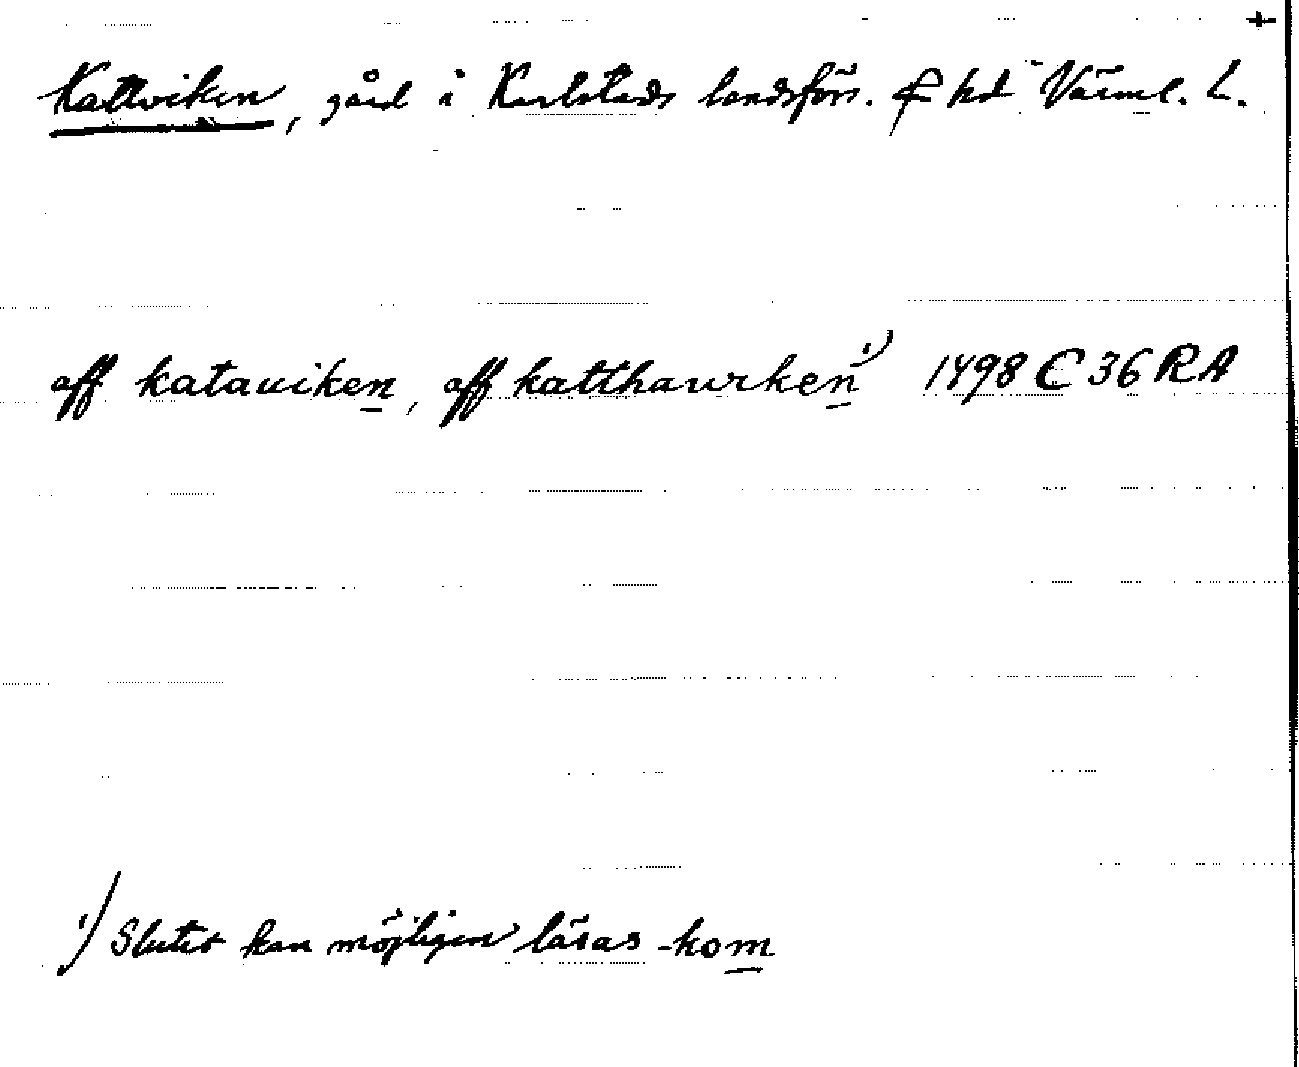 +
Kattviken, gård i Karlstads landsförs. f hd Värml. L.
aff katauiken, aff katthawrken ¹) 1498 C 36 RA
¹) Slutet kan möjligen läsas -kom